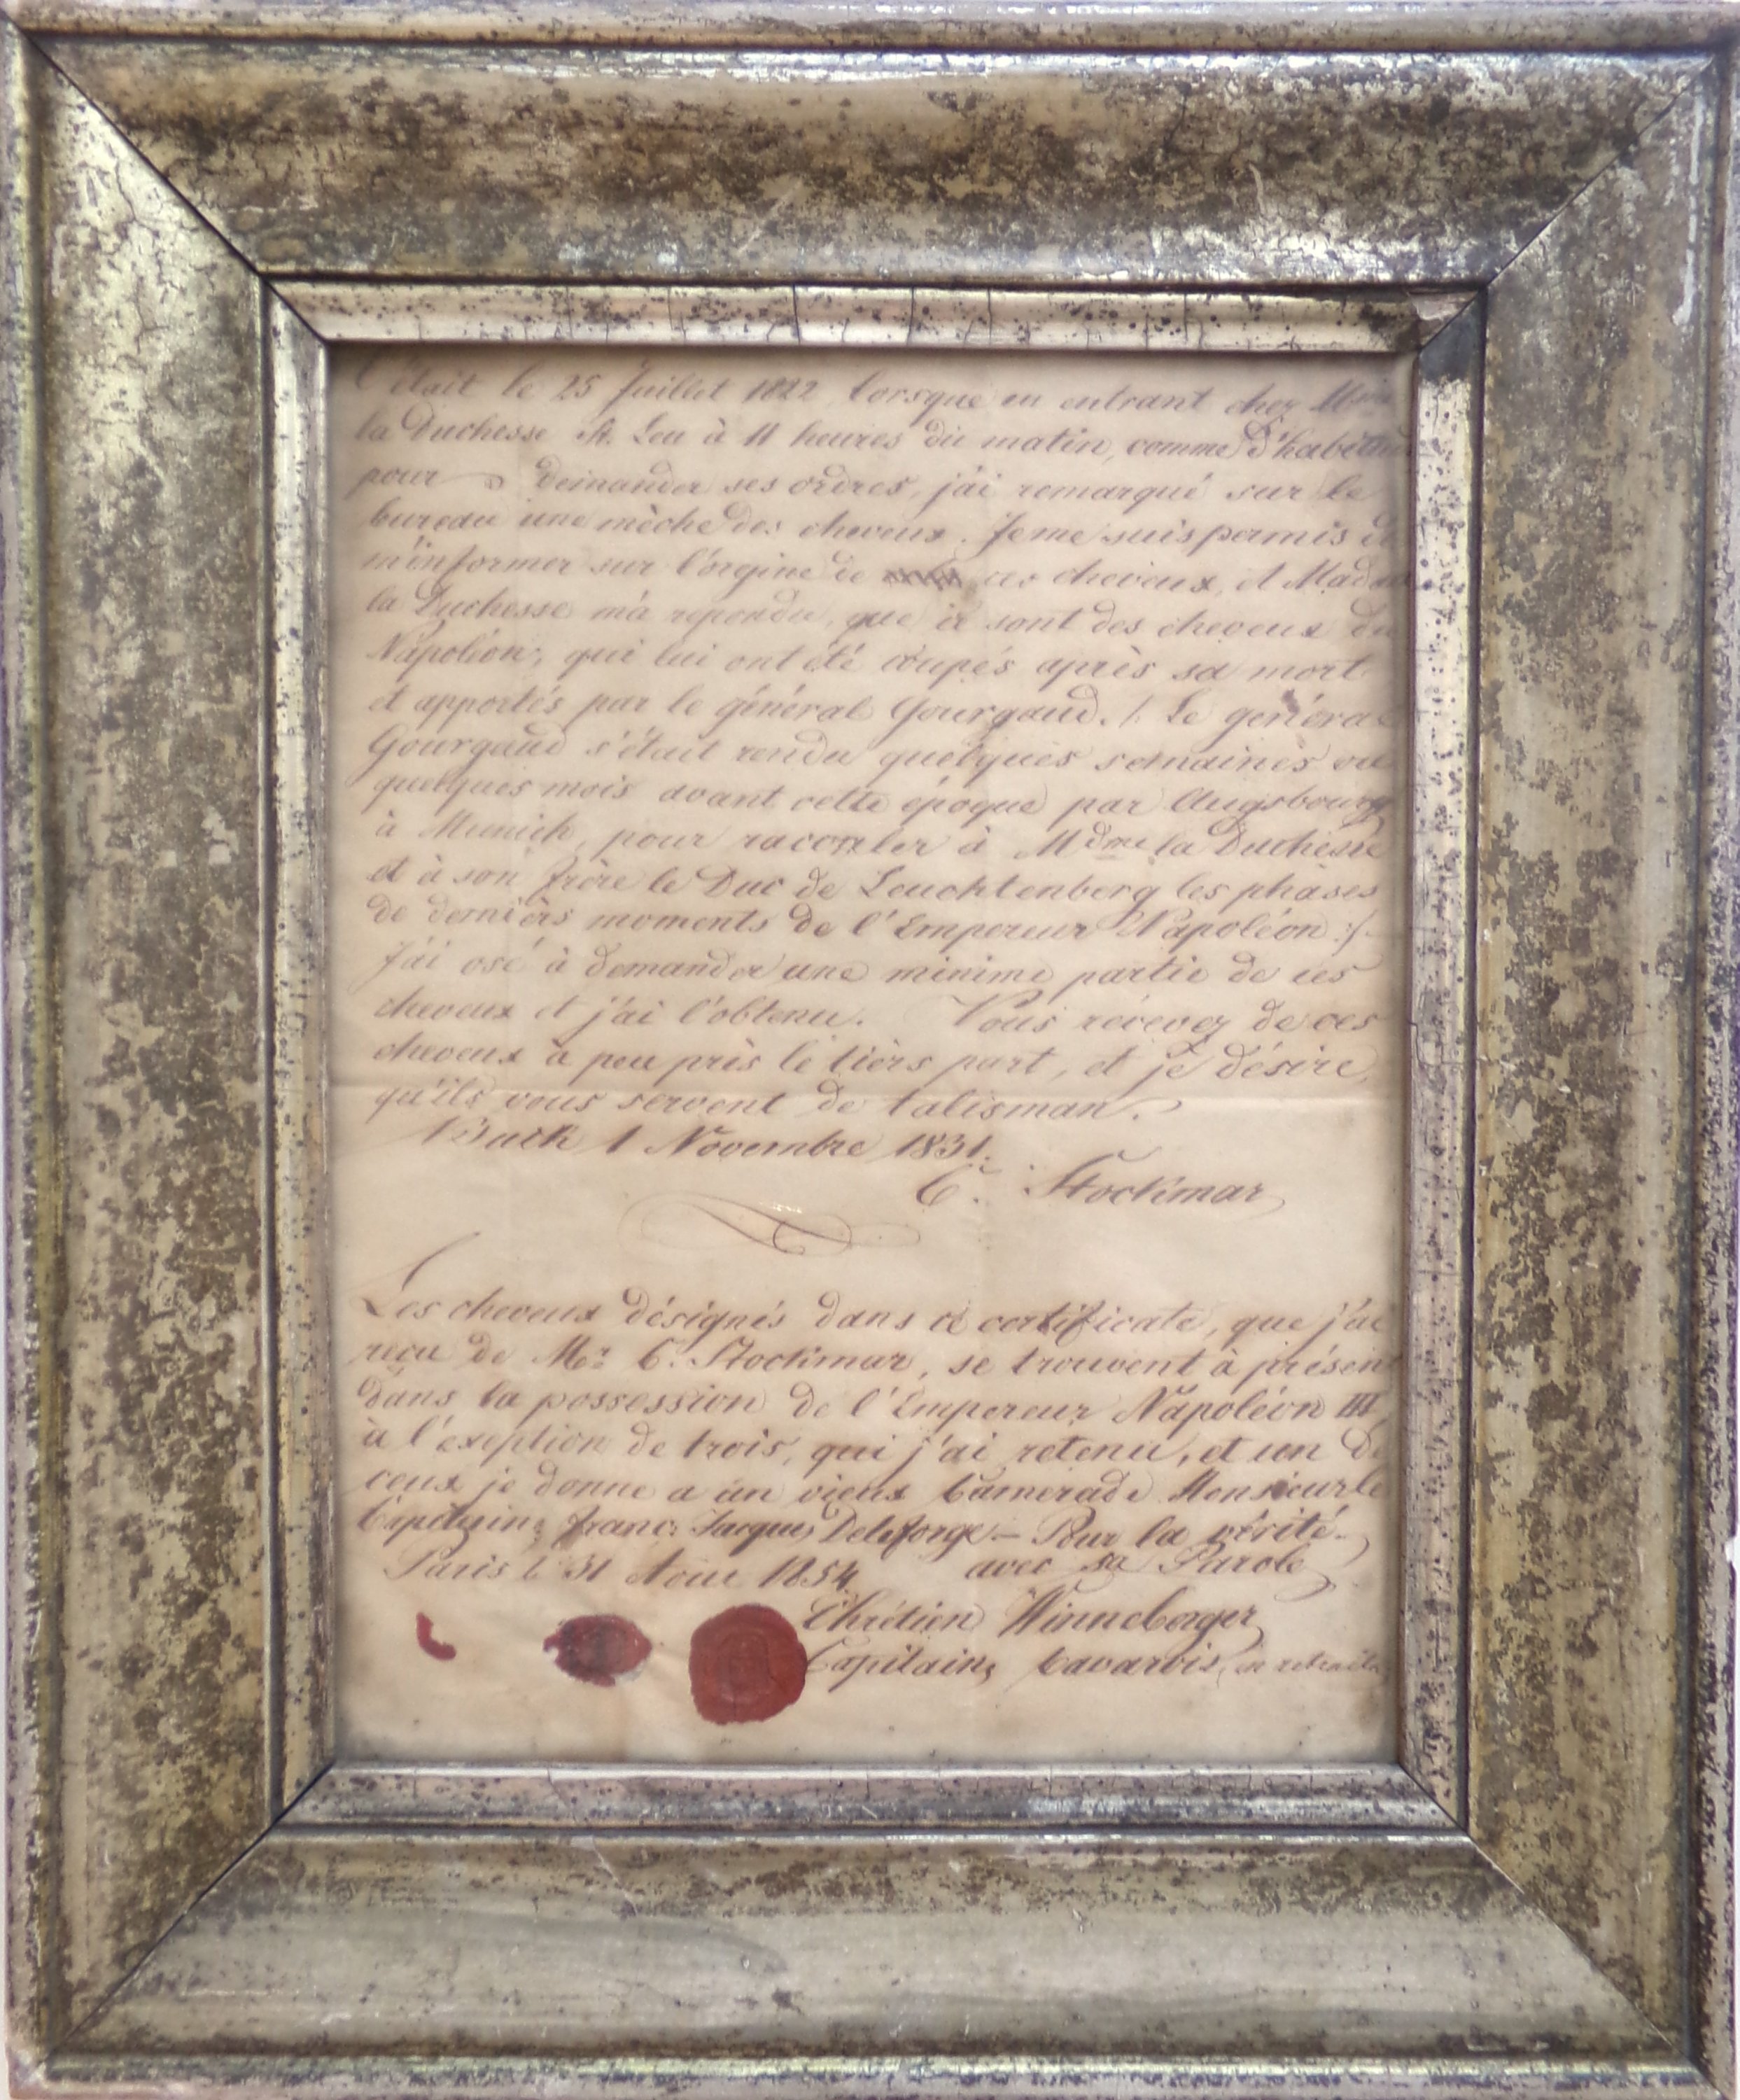 C'était le 25 Juillet 1822, lorsque en entrant chez
la Duchesse St. Leu à 11 heures du matin, comme d'habitude
pour demander ses ordres, j'ai remarqué sur le
bureau une mèche des cheveux. Je me suis permis de
m'informer sur l'orgine de ces cheveux, et Madame
la Duchesse m'a repondu, que ce sont des cheveux du
Napoléon, qui lui ont été coupés après sa mort
et apportés par le général Gourgaud. /: Le général
Gourgaud s'était rendu quelques semaines ou
quelques mois avant cette époque par Augsbourg
à Munich, pour raconter à Mdme la Duchesse
et à son frère le Duc de Leuchtenberg les phases
de derniers moments de l'Empereur Napoléon :/.
J'ai osé à demander une minime partie de ces
cheveux et j'ai l'obtenu. Vous recevez de ces
cheveux à peu près le tiers part, et je désire,
qu'ils vous servent de talisman.
1 Novembre 1831.
C. Stockmar
Les cheveux désignés dans ce certificate, que j'ai
reçu de Mr. C. Stockmar, se trouvent à présent
dans la possession de l'Empereur Napoléon III
à l'exeption de trois, qui j'ai retenu, et un de
ceux je donne a un vieux Camerade Monsieur le
Capitaine Franc. Jacques Deleforge. — Pour la vérité
avec sa Parole
Paris le 31 Aout 1854.
Chrétien Winneberger
Capitaine bavarois, en retraite